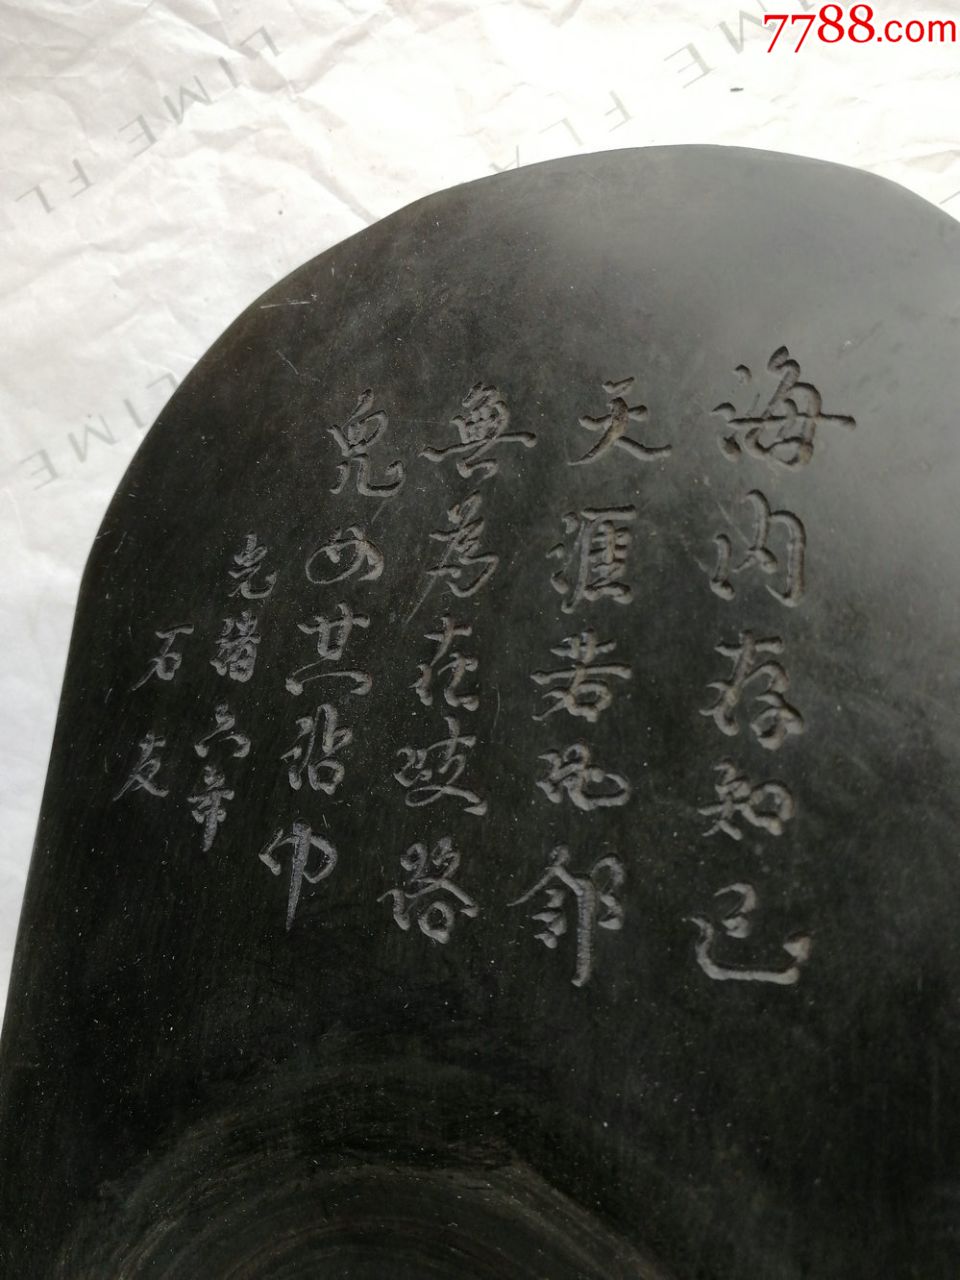 海內存知己
天涯若比邻
無為在歧路
兒女共沾巾
光绪六年
石友
7788.com
LIME FL
LIME FLA
LIME